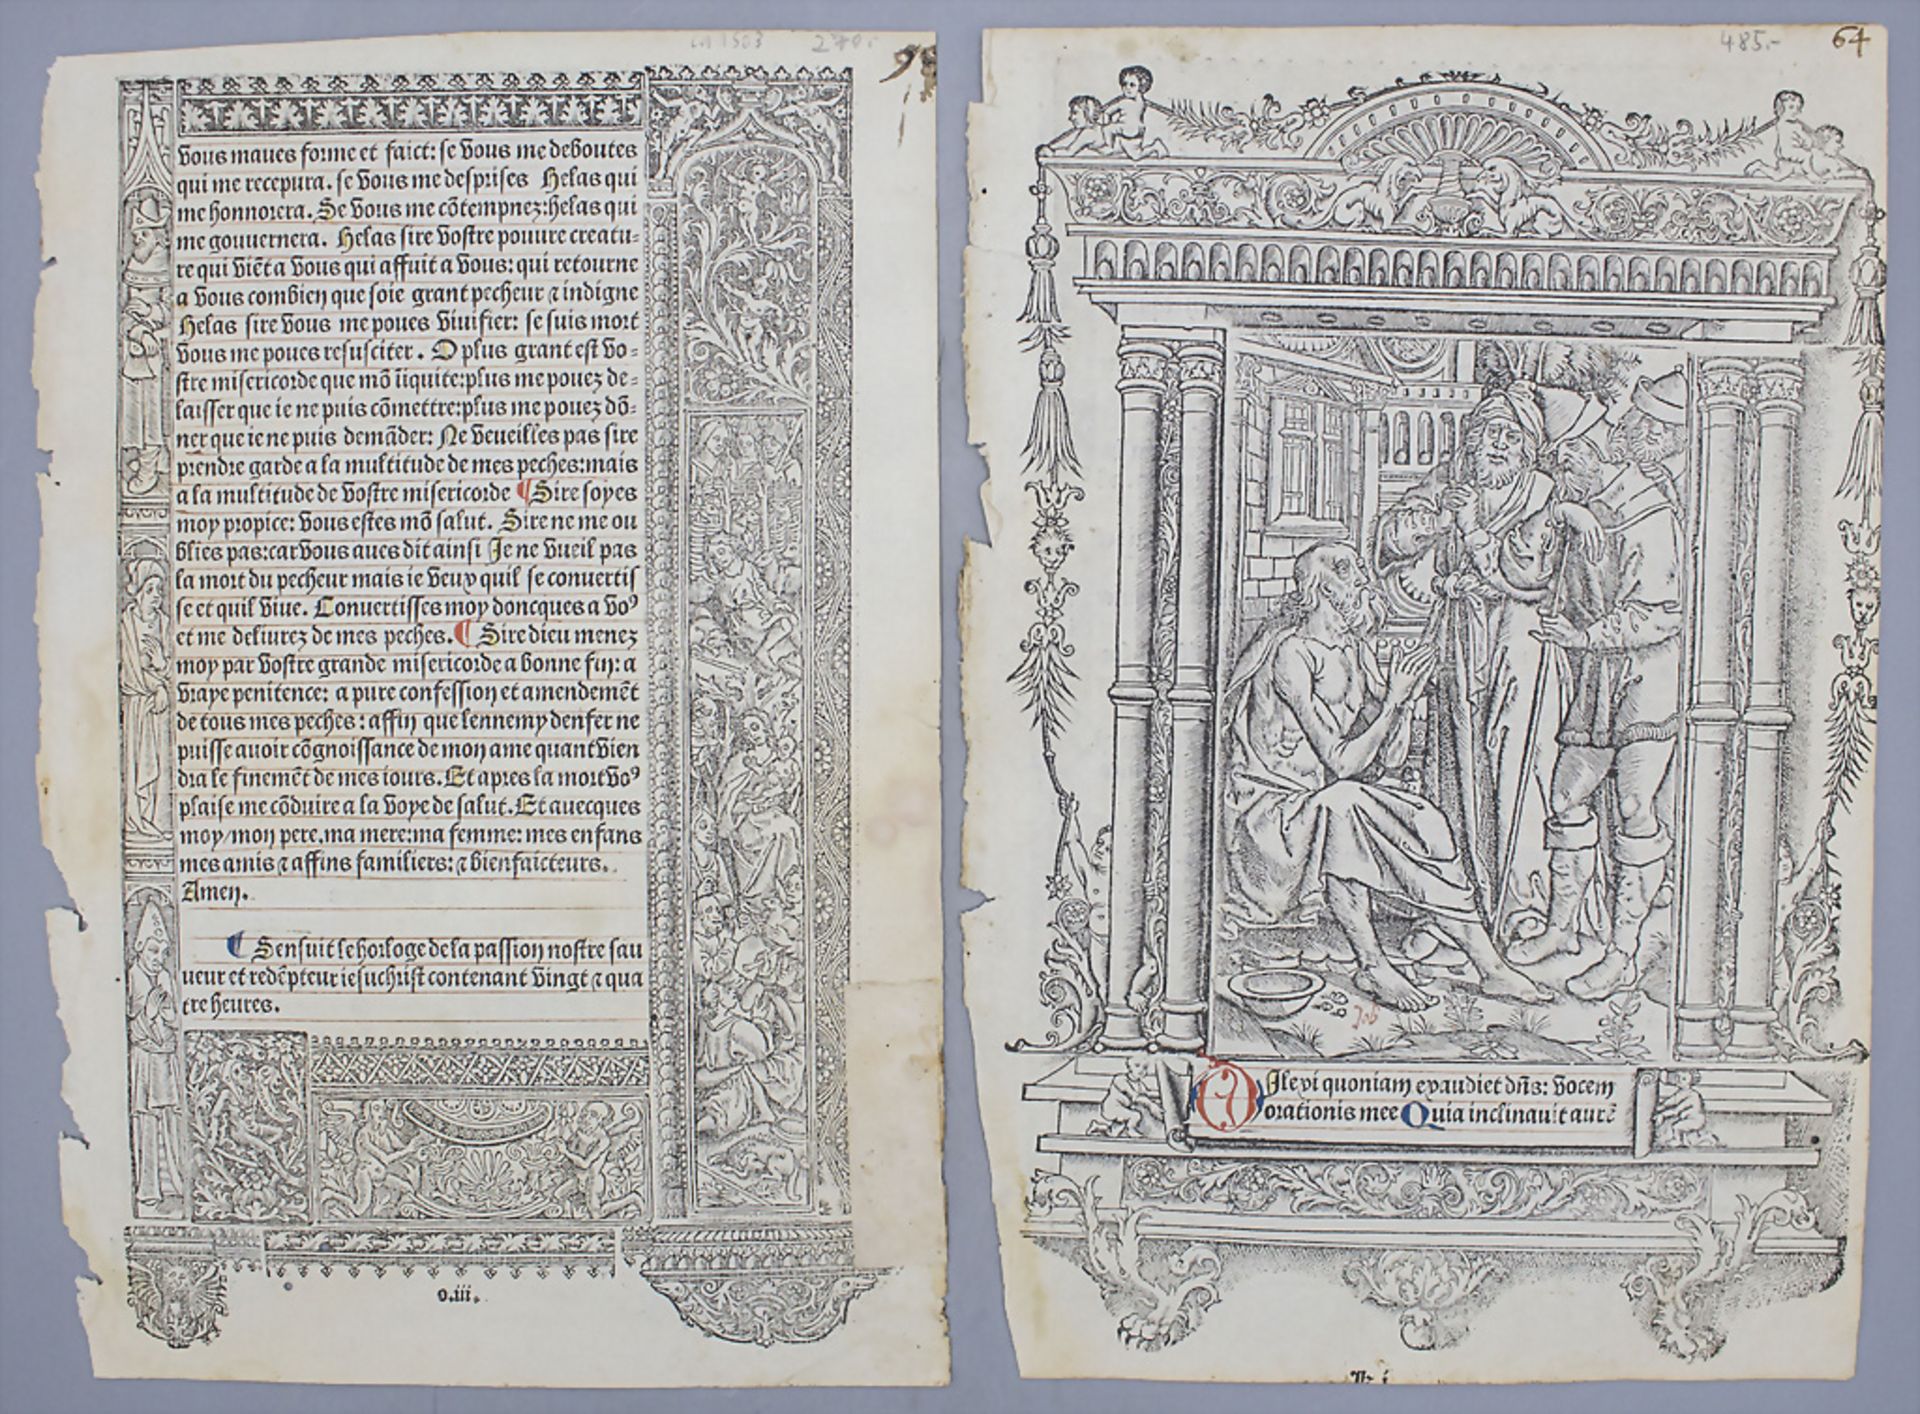 270.-
vous maves forme et faict: se vous me deboutes
qui me recepura. se vous me desprises Helas qui
me honnorera. Se vous me cōtempnez: helas qui
me gouvernera. Helas sire vostre pouure creatu-
re qui viēt a vous qui affuit a vous: qui retourne
a vous combien que soie grant pecheur ⁊ indigne
Helas sire vous me poues viuifier: se suis mort
vous me poues resusciter. O plus grant est vo-
stre misericorde que mō iiquite: plus me pouez de-
laisser que ie ne puis cōmettre: plus me pouez dō-
ner que ie ne puis demāder: Ne veueilles pas sire
prendre garde a la multitude de mes peches: mais
a la multitude de vostre misericorde ¶ Sire soyes
moy propice: vous estes mō salut. Sire ne me ou
blies pas: car vous aues dit ainsi Je ne vueil pas
la mort du pecheur mais ie veux quil se conuertis
se et quil viue. Conuertisses moy doncques a voꝰ
et me deliurez de mes peches. ¶ Sire dieu menez
moy par vostre grande misericorde a bonne fin: a
vraye penitence: a pure confession et amendemēt
de tous mes peches: affin que lennemy denfer ne
puisse auoir cōgnoissance de mon ame quant vien
dra le finemēt de mes iours. Et apres la mort voꝰ
plaise me cōduire a la voye de salut. Et auecques
moy/mon pere. ma mere: ma femme: mes enfans
mes amis ⁊ affins familiers: ⁊ bienfaicteurs.
Amen.
¶ Sensuit le horloge de la passion nostre sau
ueur et redēpteur iesuchrist contenant vingt ⁊ qua
tre heures.
o.iii.
485.-
64
Job
Dilexi quoniam exaudiet dn̄s: vocem
orationis mee Quia inclinauit aurē